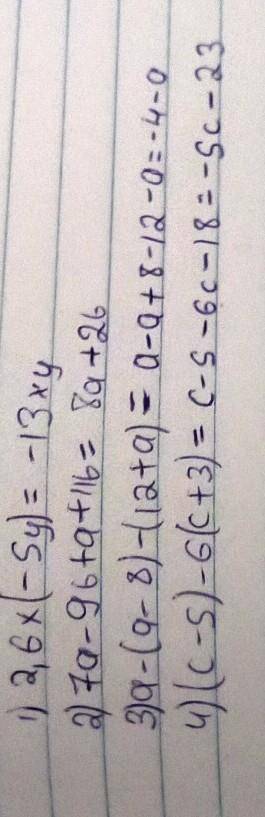 1) 2,6x(-5y)= -13xy
2) 7a-9b+a+11b= 8a+2b
3) a-(a-8)-(12+a)= a-a+8-12-a=-4-a
4) (c-5)-6(c+3)= c-5-6c-18=-5c-23